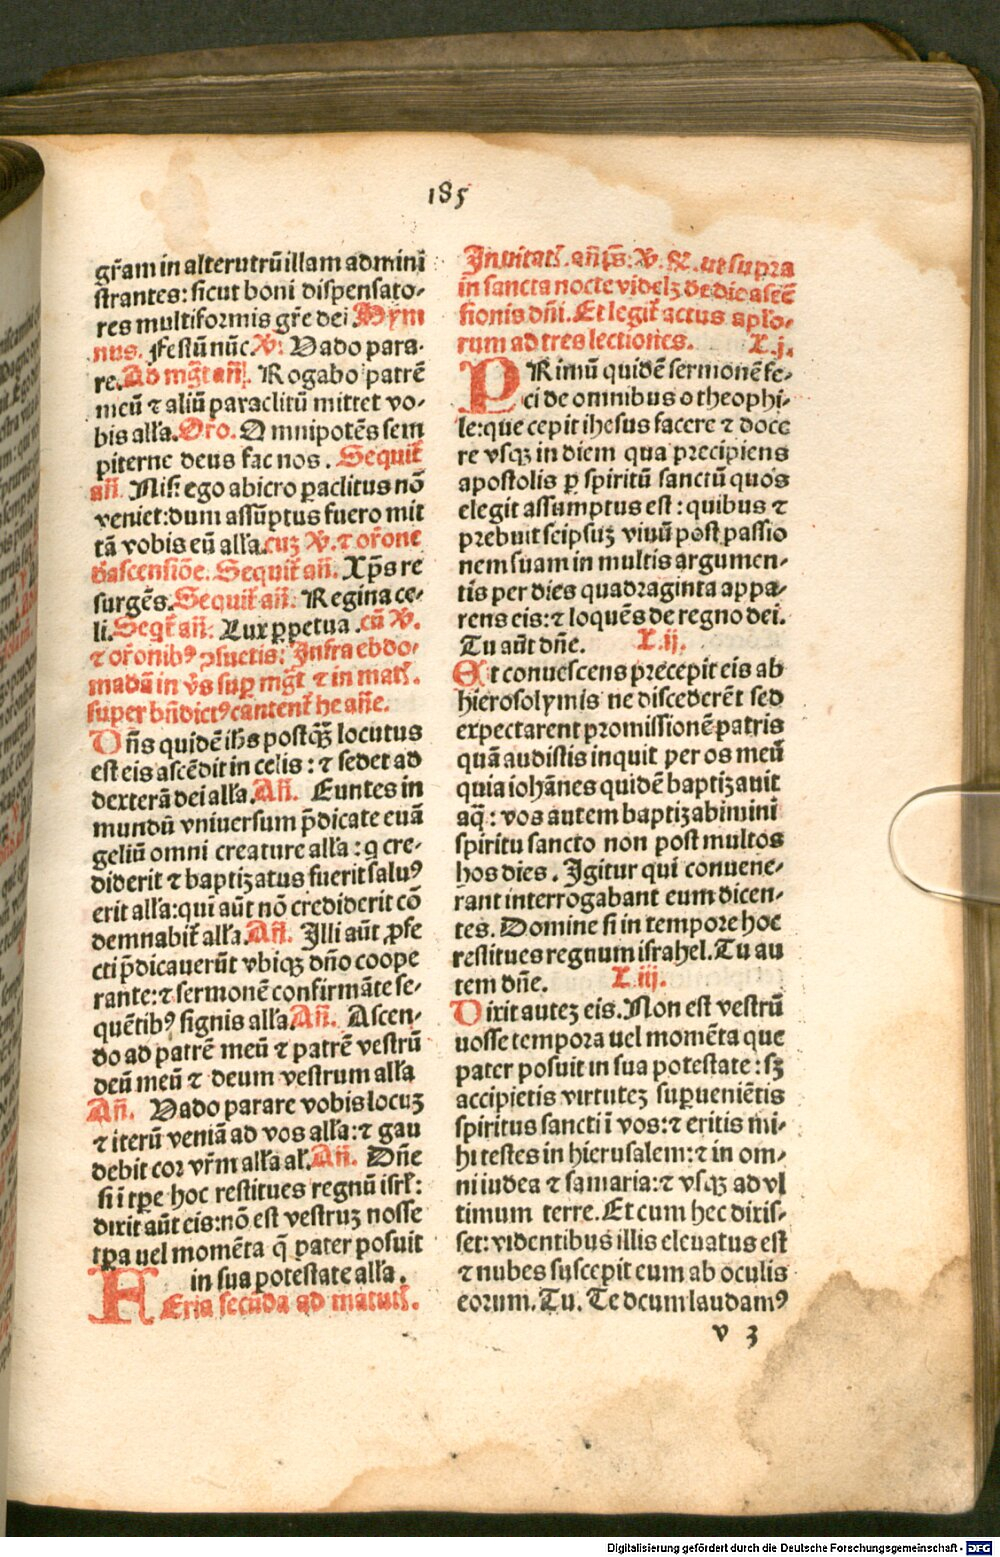 185
gr̄am in alterutrū illam admini
strantes: sicut boni dispensato-
res multiformis gr̄e dei Hym
nus. Festū nūc ℣: Vado para-
re. Ad mḡt an̄. Rogabo patrē
meū ⁊ aliū paraclitū mittet vo-
bis alľa. Oro. Omnipotēs sem
piterne deus fac nos. Sequit̄
an̄. Nisi ego abiero ꝑaclitus nō
veniet: dum assūptus fuero mit
tā vobis eū alľa. cuʒ ℣. ⁊ or̄one
d̄ ascensiōe. Sequit̄ an̄. Xp̄s re
surgēs. Sequit̄ an̄. Regina ce-
li. Seqt̄ an̄: Lux ꝑpetua. cū ℣.
⁊ or̄onibꝰ ꝯsuetis: Infra ebdo-
madā in v̄s suꝑ mḡt ⁊ in mat̄.
super bn̄dictꝰ cantent̄ he an̄e.
Dn̄s quidē ih̄s postqꝫ̄ locutus
est eis ascēdit in celis: ⁊ sedet ad
dexterā dei alľa. An̄. Euntes in
mundū vniuersum p̄dicate euā
geliū omni creature alľa: q cre-
diderit ⁊ baptizatus fuerit saluꝰ
erit alľa: qui aūt nō crediderit cō
demnabit̄ alľa. An̄. Illi aūt ꝓfe
cti p̄dicauerūt vbiqꝫ dn̄o coope
rante: ⁊ sermonē confirmāte se-
quētibꝰ signis alľa An̄. Ascen-
do ad patrē meū ⁊ patrē vestrū
deū meū ⁊ deum vestrum alľa
An̄. Vado parare vobis locuʒ
⁊ iterū veniā ad vos alľa: ⁊ gau
debit cor vr̄m alľa aľ. An̄. Dn̄e
si ī tꝑe hoc restitues regnū isrľ:
dixit aūt eis: nō est vestruʒ nosse
tꝑa uel momēta q̄ pater posuit
in sua potestate alľa.
FEria secūda ad matut̄.
Inuitat̄. an̄ ps̄. ℣. ℟. ut supra
in sancta nocte videlʒ de die ascē
sionis dn̄i. Et legit̄ actus aplo-
rum ad tres lectiones. L. j.
PRimū quidē sermonē fe-
ci de omnibus o theophi-
le: que cepit ihesus facere ⁊ doce
re vsqꝫ in diem qua precipiens
apostolis ꝑ spiritū sanctū quos
elegit assumptus est: quibus ⁊
prebuit seipsuʒ viuū post passio
nem suam in multis argumen-
tis per dies quadraginta appa-
rens eis: ⁊ loquēs de regno dei.
Tu aūt dn̄e. L. ij.
Et conuescens precepit eis ab
hierosolymis ne discederēt sed
expectarent promissionē patris
quā audistis inquit per os meū
quia iohānes quidē baptizauit
aq̄: vos autem baptizabimini
spiritu sancto non post multos
hos dies. Igitur qui conuene-
rant interrogabant eum dicen-
tes. Domine si in tempore hoc
restitues regnum israhel. Tu au
tem dn̄e. L. iij.
Dixit auteʒ eis. Non est vestrū
nosse tempora uel momēta que
pater posuit in sua potestate: sʒ
accipietis virtuteʒ suꝑueniētis
spiritus sancti ī vos: ⁊ eritis mi-
hi testes in hierusalem: ⁊ in om-
ni iudea ⁊ samaria: ⁊ vsqꝫ ad vl
timum terre. Et cum hec dixis-
set: videntibus illis eleuatus est
⁊ nubes suscepit eum ab oculis
eorum. Tu. Te deum laudamꝰ
v 3
Digitalisierung gefördert durch die Deutsche Forschungsgemeinschaft - DFG